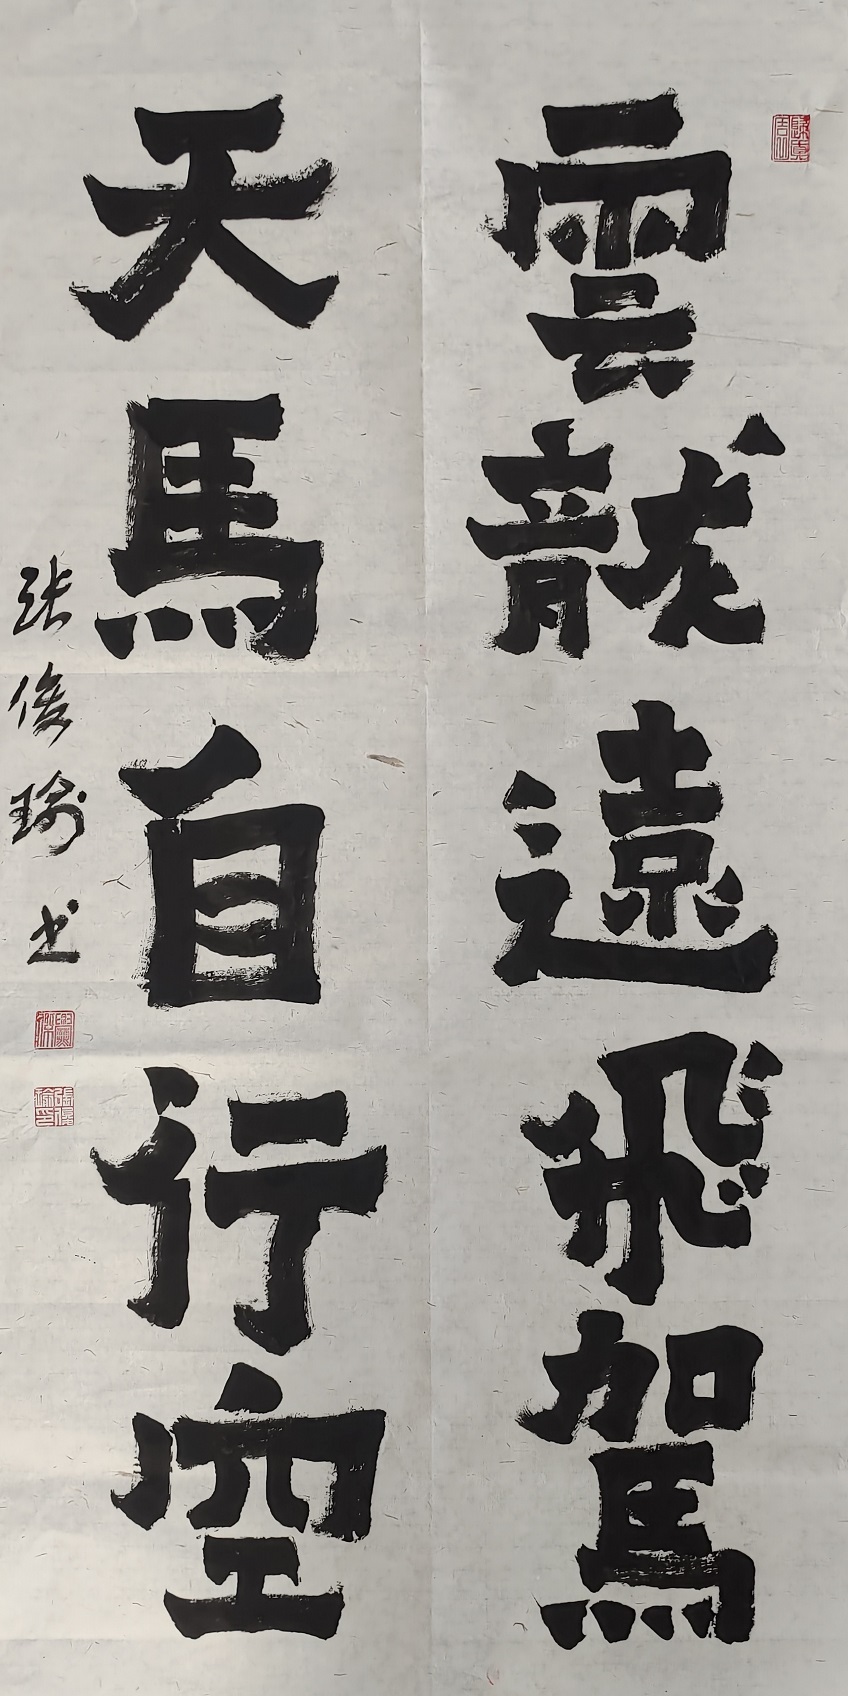 雲龍遠飛駕
天馬自行空
张俊瑜书